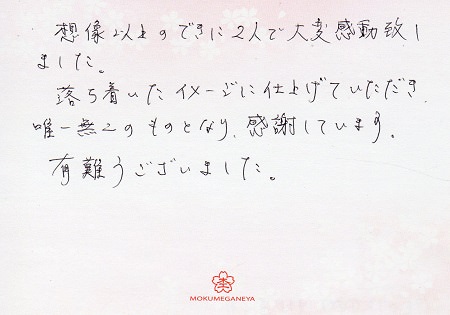 想像以上のできに2人で大変感動致し
ました。
落ち着いたイメージに仕上げていただき、
唯一無二のものとなり、感謝しています。
有難うございました。
MOKUMEGANEYA